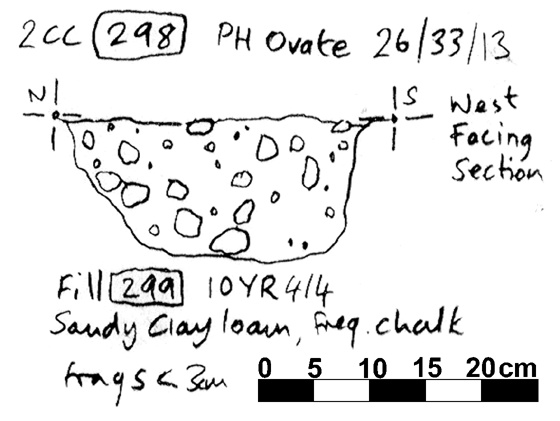 2CC 298 PH Ovate 26/33/13
N S
West
Facing
Section
Fill 299 10YR 4/4
Sandy Clay loam, freq. chalk
frags < 3cm
0 5 10 15 20cm